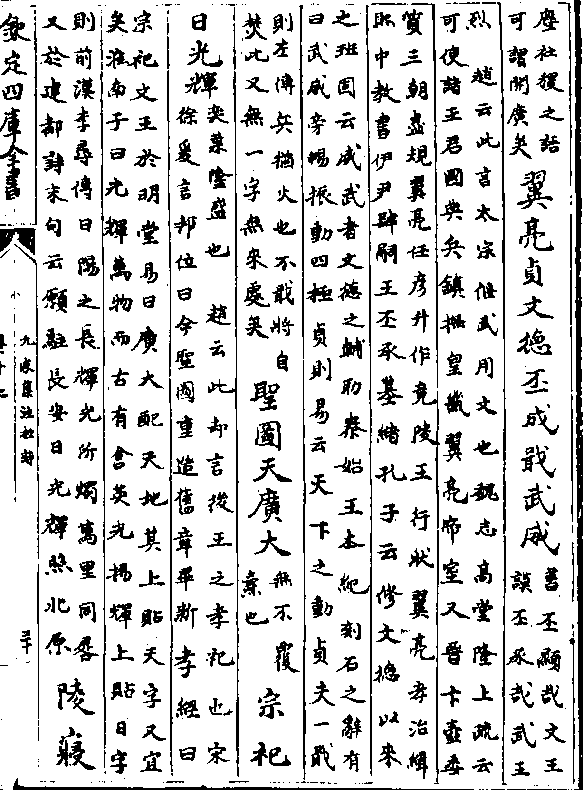 歷社稷之詰
可謂開廣矣
翼亮貞文德丕成戢武威
書丕顯哉文王
謨丕承哉武王
烈 趙云此言太宗偃武用文也魏志高堂隆上疏云
可使諸王君國典兵鎮撫皇畿翼亮帝室又晉卞壼委
質三朝盡規翼亮任彥升作竟陵王行狀翼亮孝治緝
熙中教書伊尹肆嗣王丕承基緒孔子云修文德以來
之班固云威武者文德之輔助秦始王本紀刻石之辭有
曰武威旁暢振動四極貞則易云天下之動貞夫一戢
則左傳兵猶火也不戢將自
焚此又無一字無來處矣
聖圖天廣大
無不覆
燾也
宗祀
日光輝
奕葉隆盛也 趙云此却言後王之孝祀也宋
徐爰言郊位曰今聖圖重造舊章畢新孝經曰
宗祀文王於明堂易曰廣大配天地其上貼天字又宜
矣淮南子曰光輝萬物而古有含英光揚輝上貼日字
則前漢李尋傳曰陽之長輝光所燭萬里同晷
又於建都詩末句云願駐長安日光輝照北原
陵寢
欽定四庫全書
九家集注杜詩
三十